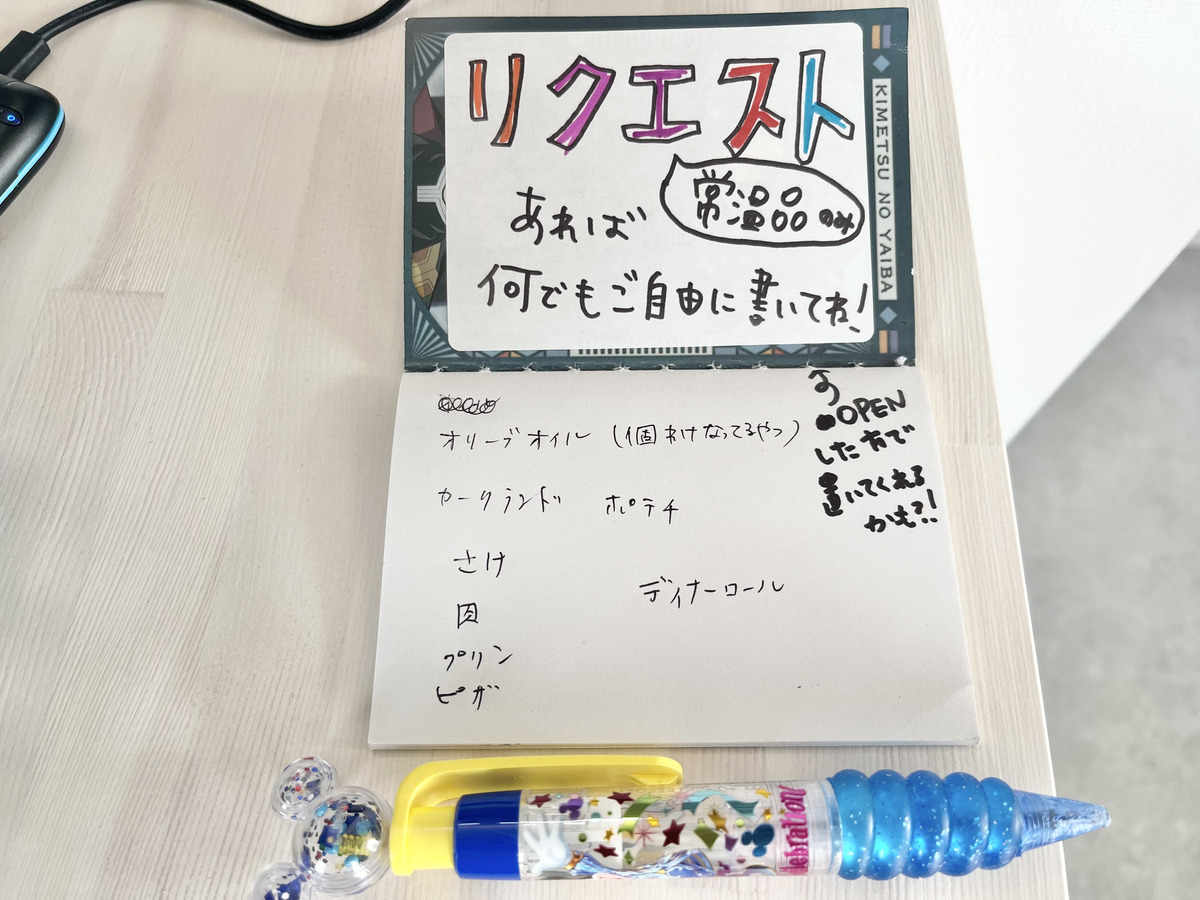 リクエスト
あれば
常温品のみ
何でもご自由に書いてね!
KIMETSU NO YAIBA
オリーブオイル (個わけなってるやつ)
OPEN
した方で
置いてくれる
かも?!
カークランド ポテチ
さけ
ディナーロール
肉
プリン
ピザ